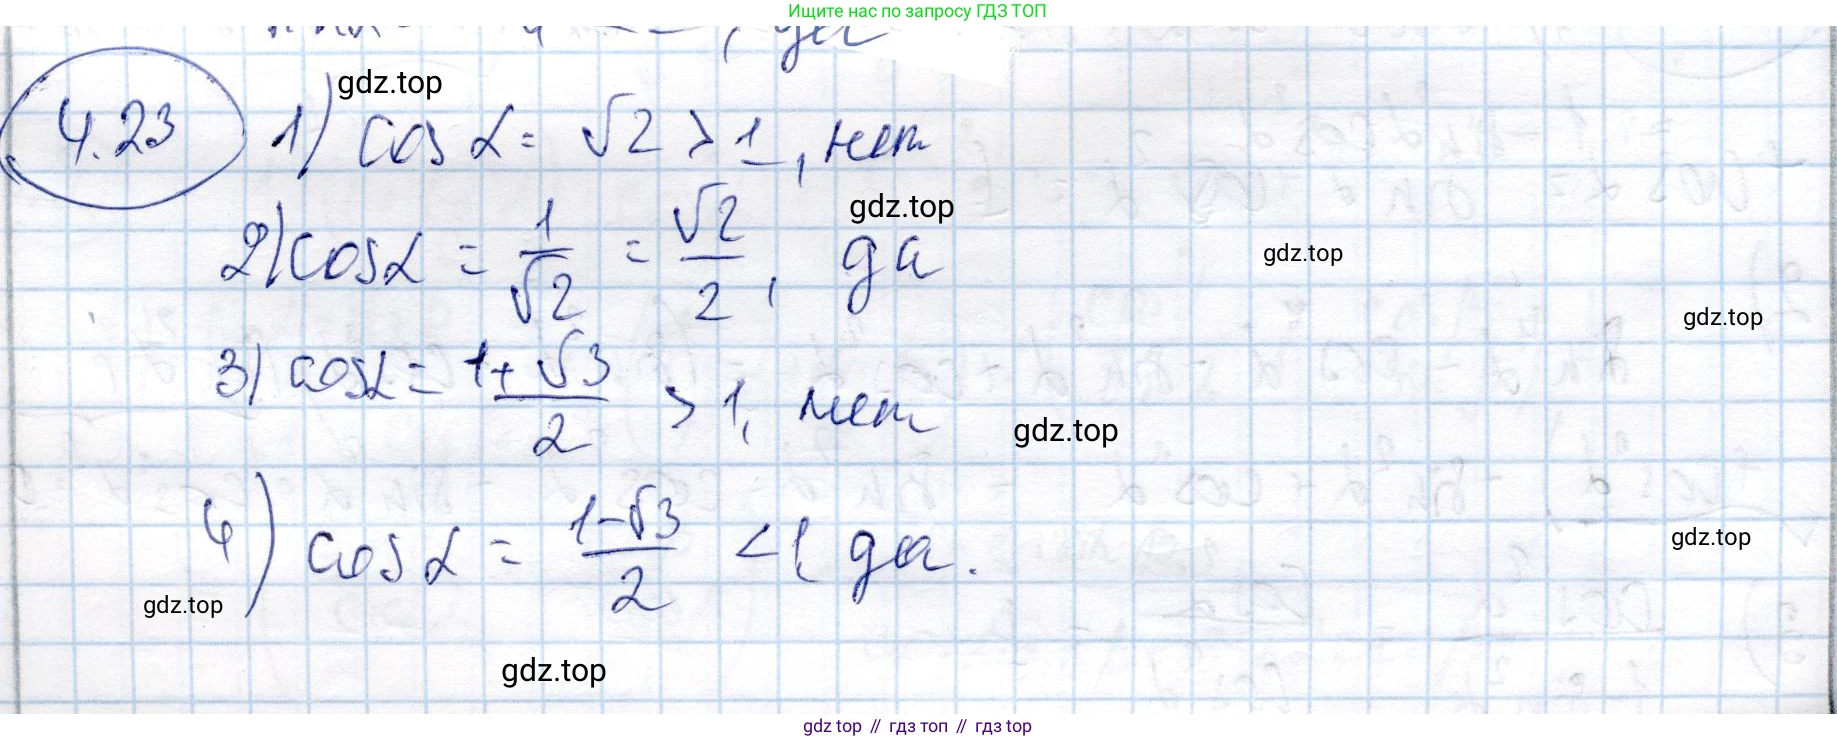 Ищите нас по запросу ГДЗ ТОП
gdz.top
4.23 1) cos α = √2 > 1, нет
gdz.top
2) cos α = 1/√2 = √2/2, да
gdz.top
gdz.top
3) cos α = 1+√3/2 > 1, нет
gdz.top
4) cos α = 1-√3/2 < 1, да.
gdz.top
gdz.top
gdz.top
gdz top // гдз топ // гдз top